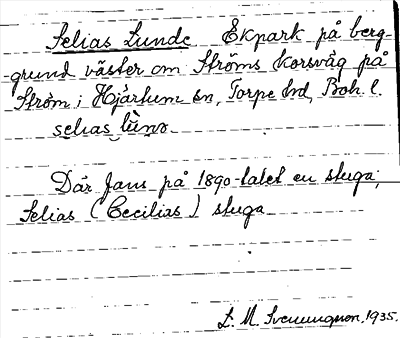 Selias Lunde Ekpark på berg-
grund väster om Ströms korsväg på
Ström i Hjärtum sn, Torpe hd, Boh. l.
selias lùnə
Där fans på 1890-talet en stuga;
Selias (Cecilias) stuga
L. M. Svenungsson, 1935.